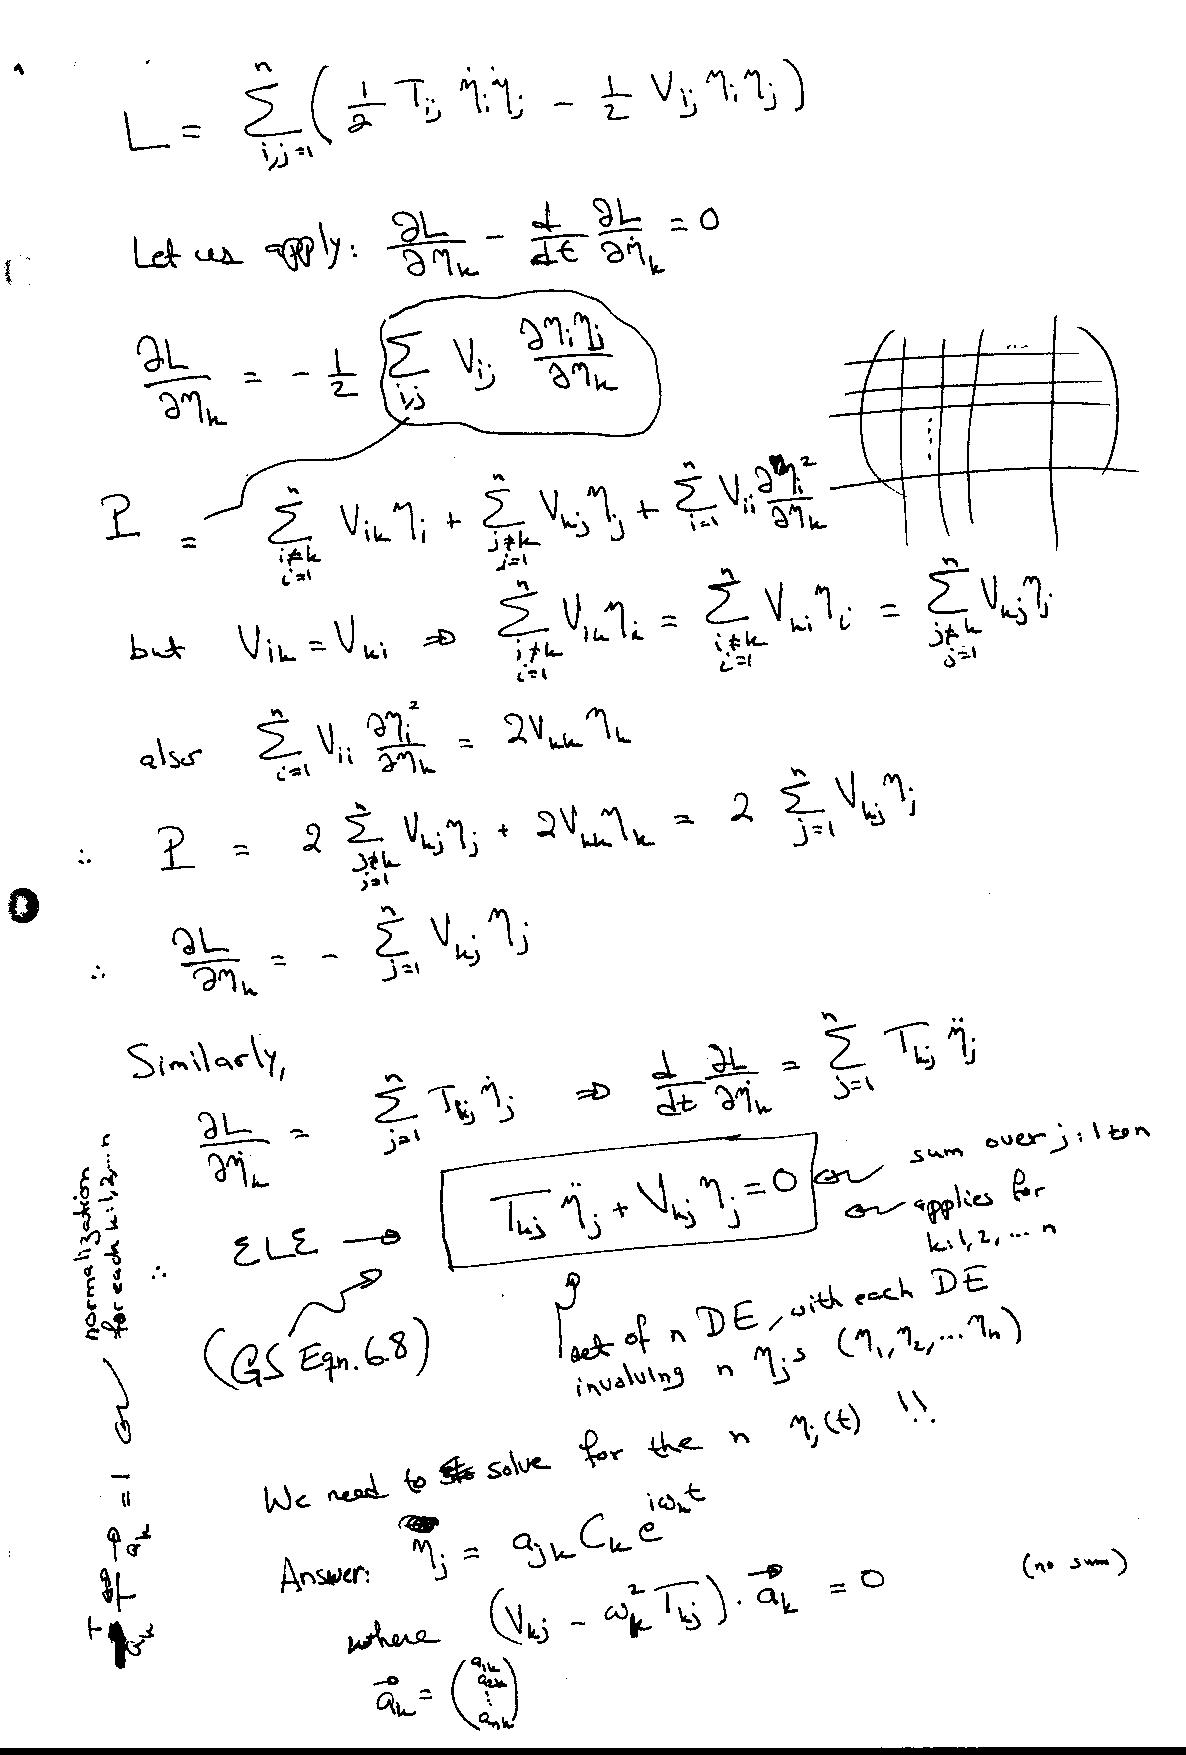 L = Σ_{i,j=1}^{n} ( 1/2 T_{ij} η̇_i η̇_j − 1/2 V_{ij} η_i η_j )
Let us apply: ∂L/∂η_k − d/dt ∂L/∂η̇_k = 0
∂L/∂η_k = − 1/2 Σ_{i,j} V_{ij} ∂η_iη_j/∂η_k
...
P = Σ_{i≠k, i=1}^{n} V_{ik} η_i + Σ_{j≠k, j=1}^{n} V_{kj} η_j + Σ_{i=1}^{n} V_{ii} ∂η_i²/∂η_k
but V_{ik} = V_{ki} ⇒ Σ_{i≠k, i=1}^{n} V_{ik} η_i = Σ_{i≠k, i=1}^{n} V_{ki} η_i = Σ_{j≠k, j=1}^{n} V_{kj} η_j
also Σ_{i=1}^{n} V_{ii} ∂η_i²/∂η_k = 2V_{kk} η_k
∴ P = 2 Σ_{j≠k, j=1}^{n} V_{kj} η_j + 2V_{kk} η_k = 2 Σ_{j=1}^{n} V_{kj} η_j
∴ ∂L/∂η_k = − Σ_{j=1}^{n} V_{kj} η_j
Similarly,
∂L/∂η̇_k = Σ_{j=1}^{n} T_{kj} η̇_j ⇒ d/dt ∂L/∂η̇_k = Σ_{j=1}^{n} T_{kj} η̈_j
∴ ELE → T_{kj} η̈_j + V_{kj} η_j = 0
sum over j:1 to n
applies for
k:1,2,... n
(GS Eqn. 6.8)
set of n DE, with each DE
involving n η_j s (η_1, η_2, ... η_n)
We need to solve for the n η_j(t) !!
Answer: η_j = a_{jk} C_k e^{iω_k t}
where (V_{kj} − ω_k² T_{kj}) · a⃗_k = 0 (no sum)
a⃗_k = ( a_{1k} a_{2k} ⋮ a_{nk} )
a⃗_k^T T⃗ a⃗_k = 1
normalization
for each k:1,2,...n